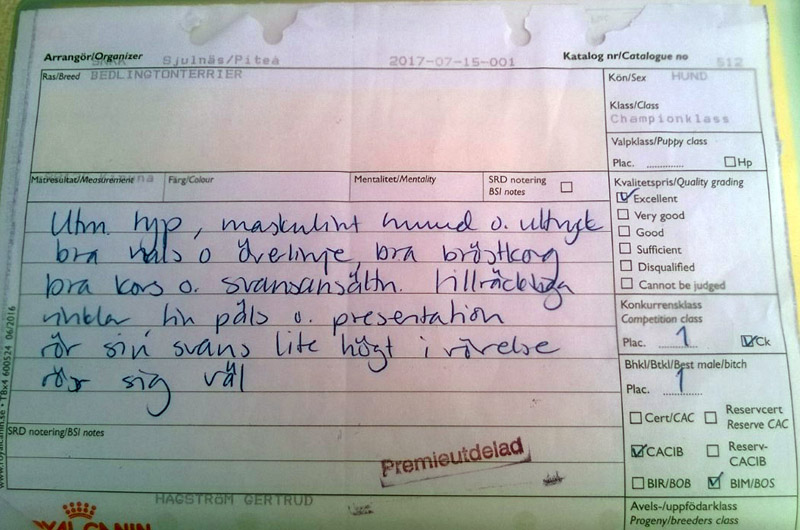 Arrangör/Organizer
Sjulnäs/Piteå
2017-07-15-001
Katalog nr/Catalogue no
512
Ras/Breed BEDLINGTONTERRIER
Kön/Sex HUND
Klass/Class
Championklass
Valpklass/Puppy class
Plac. ............ ☐ Hp
Mätresultat/Measurement
Färg/Colour
Mentalitet/Mentality
SRD notering
BSI notes ☐
Kvalitetspris/Quality grading
☑ Excellent
☐ Very good
☐ Good
☐ Sufficient
☐ Disqualified
☐ Cannot be judged
Utm. typ, maskulint huvud o. uttryck
bra hals o överlinje, bra bröstkorg
bra kors o. svansansättn. tillräckliga
vinklar, fin päls o. presentation
för sin svans lite högt i rörelse
rör sig väl
Konkurrensklass
Competition class
Plac. 1 ☑ Ck
Bhkl/Btkl/Best male/bitch
Plac. 1
☐ Cert/CAC ☐ Reservcert
Reserve CAC
☑ CACIB ☐ Reserv-
CACIB
☐ BIR/BOB ☑ BIM/BOS
SRD notering/BSI notes
Premieutdelad
HAGSTRÖM GERTRUD
ROYAL CANIN
Avels-/uppfödarklass
Progeny/breeders class
www.royalcanin.se • TBx4 600524 06/2016